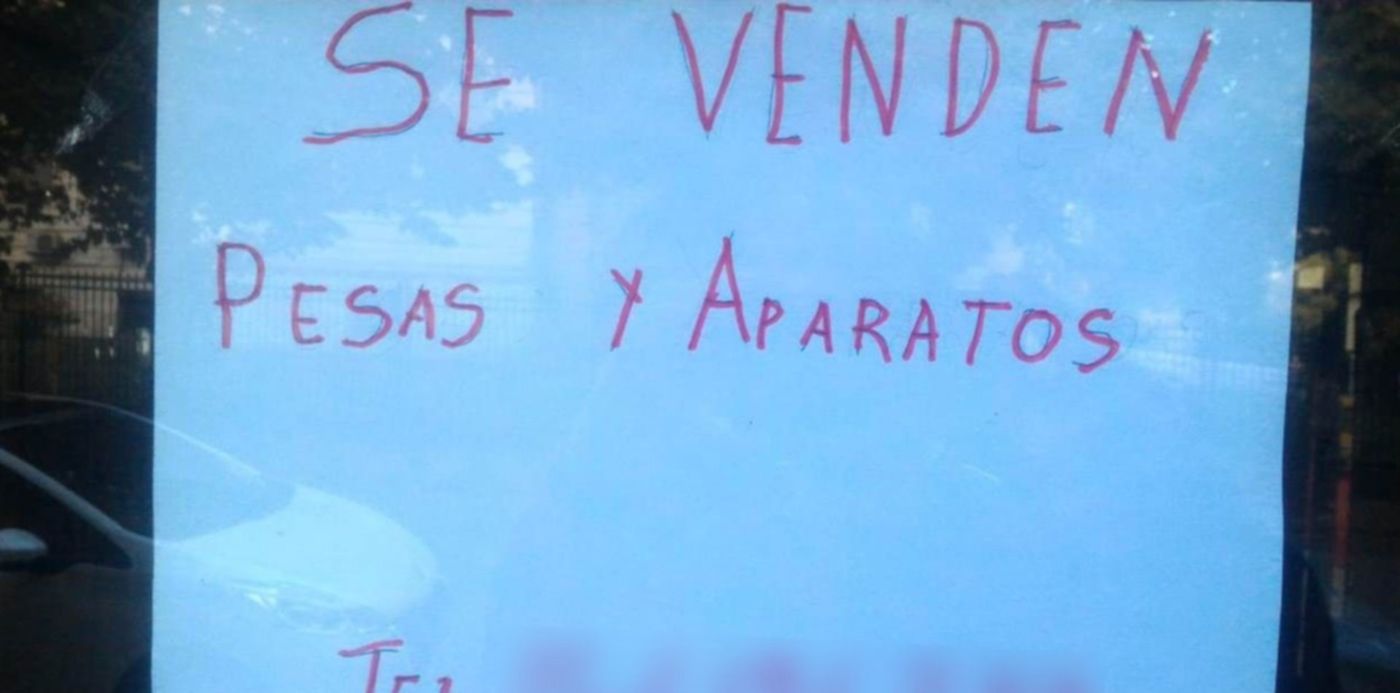 SE VENDEN
PESAS Y APARATOS
TEL